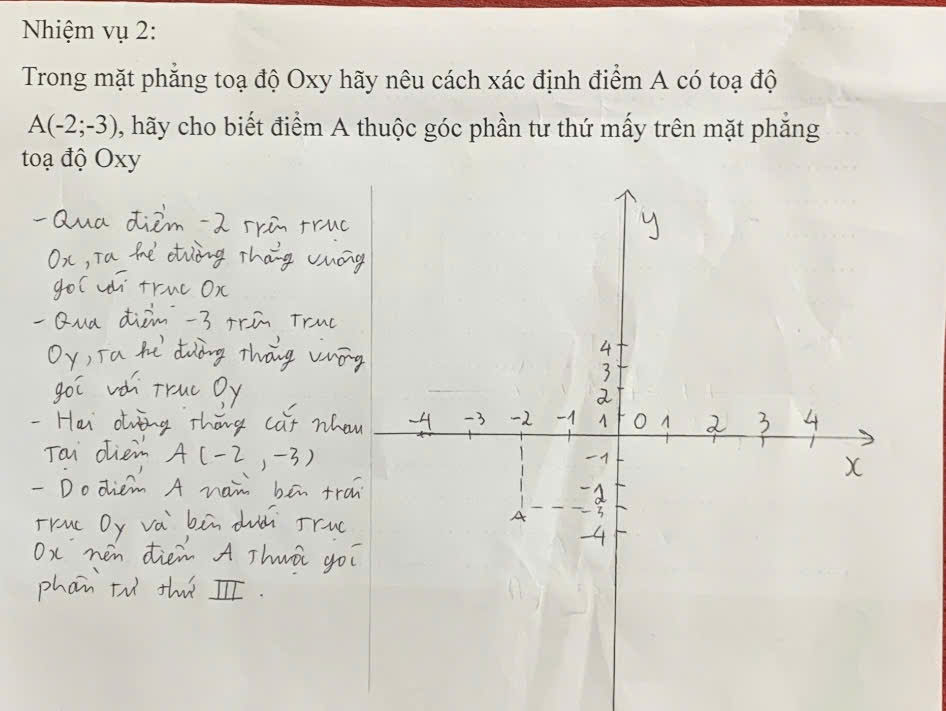 Nhiệm vụ 2:
Trong mặt phẳng toạ độ Oxy hãy nêu cách xác định điểm A có toạ độ
A(-2;-3), hãy cho biết điểm A thuộc góc phần tư thứ mấy trên mặt phẳng
toạ độ Oxy
- Qua điểm -2 trên trục
Ox, ta kẻ đường thẳng vuông
góc với trục Ox
- Qua điểm -3 trên trục
Oy, ta kẻ đường thẳng vuông
góc với trục Oy
- Hai đường thẳng cắt nhau
tại điểm A (-2, -3)
- Do điểm A nằm bên trái
trục Oy và bên dưới trục
Ox nên điểm A thuộc góc
phần tư thứ III.
y
4
3
2
-4 -3 -2 -1 1 0 1 2 3 4
x
-1
-2
-3
A
-4